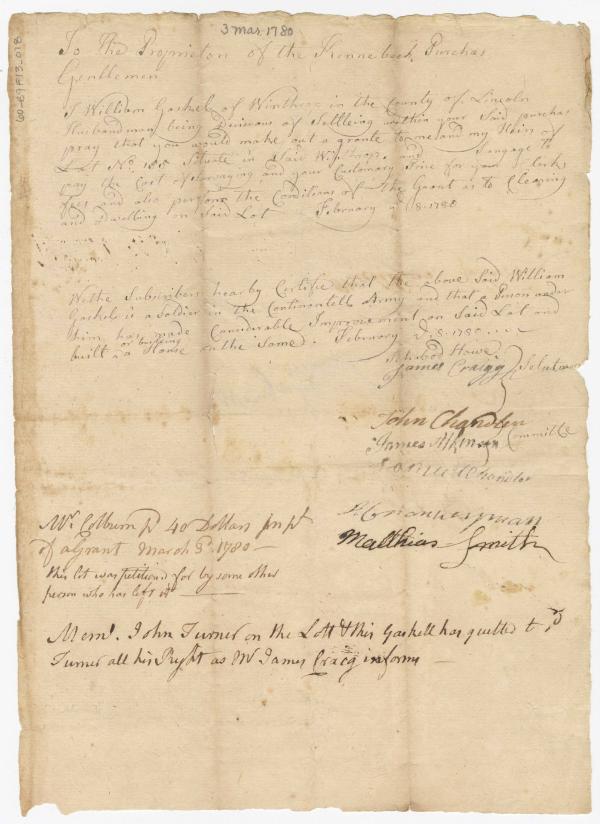 3 Mar. 1780
To The Proprietors of the Kennebeck Purchas
Gentlemen
I William Gaskel of Winthrop in the County of Lincoln
Husbandman being Desirous of Settleing within your Said purchas
pray that you would make out a grante to me and my Heirs of
Lot No. Situate in Said Winthrop and I engage to
pay the Cost of Survaying and your Customary Price for your Clerks
fees and also perform the Conditions of the Grant as to Clearing
and Dwelling on Said Lot February 8. 1780
We the Subscribers hearby Certifie that the above Said William
Gaskel is a Soldier in the Continentell Army and that a Person under
him has made Considerable Improvement on Said Lot and
built a House or building on the Same. February 8. 1780
Howe
James Craigg
John Chandler
James Committe
Chandler
Matthias Smith
Mr. Colburn pd 40 Dollars in pt
of a Grant March 3d. 1780
this lot was petitiond for by some other
person who has left it
Memo. John Turner on the Lott & this Gaskell has quitted to sd
Turner all his Right as Mr James Cracg informs
60-89F13_078